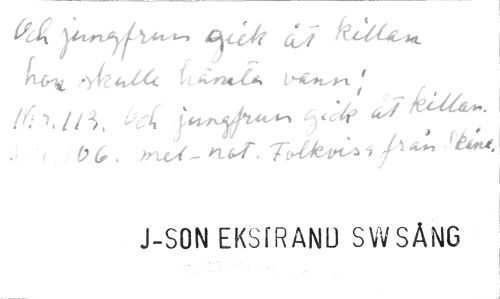 Och jungfrun gick åt killan
hon skulle hämta vann!
N:r. 113. Och jungfrun gick åt killan.
106. mel-not. Folkvisa från Skåne.
J-SON EKSTRAND SW SÅNG